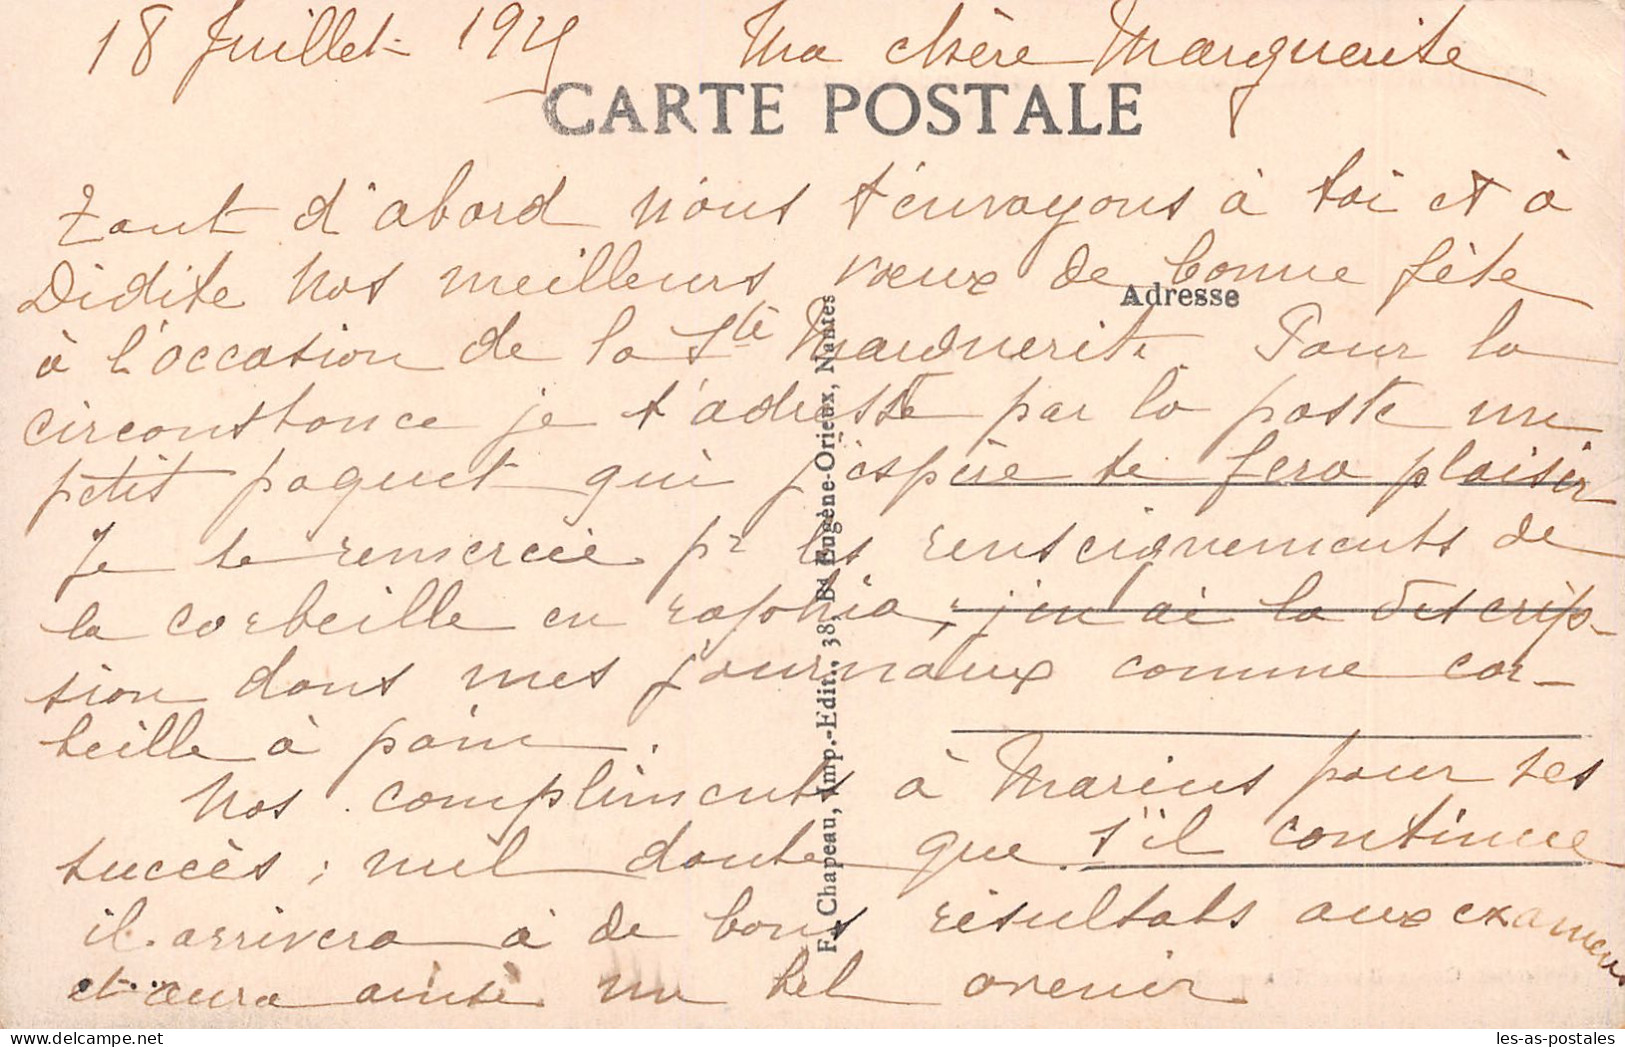 18 Juillet 1925 Ma chère Marguerite
CARTE POSTALE
Tout d'abord nous t'envoyons à toi et à
Didite nos meilleurs vœux de bonne fête
Adresse
à l'occasion de la Ste Marguerite. Pour la
circonstance je t'adresse par la poste un
petit paquet qui j'espère te fera plaisir
Je te remercie pr les renseignements de
la corbeille en raphia, j'en ai la descrip-
tion dans mes journaux comme cor-
beille à pain.
Nos compliments à Marius pour ses
succès ; nul doute que s'il continue
il arrivera à de bons résultats aux examens
et aura ainsi un bel avenir
F. Chapeau, Imp.-Edit., 38, Bd Eugène-Orieux, Nantes
les-as-postales